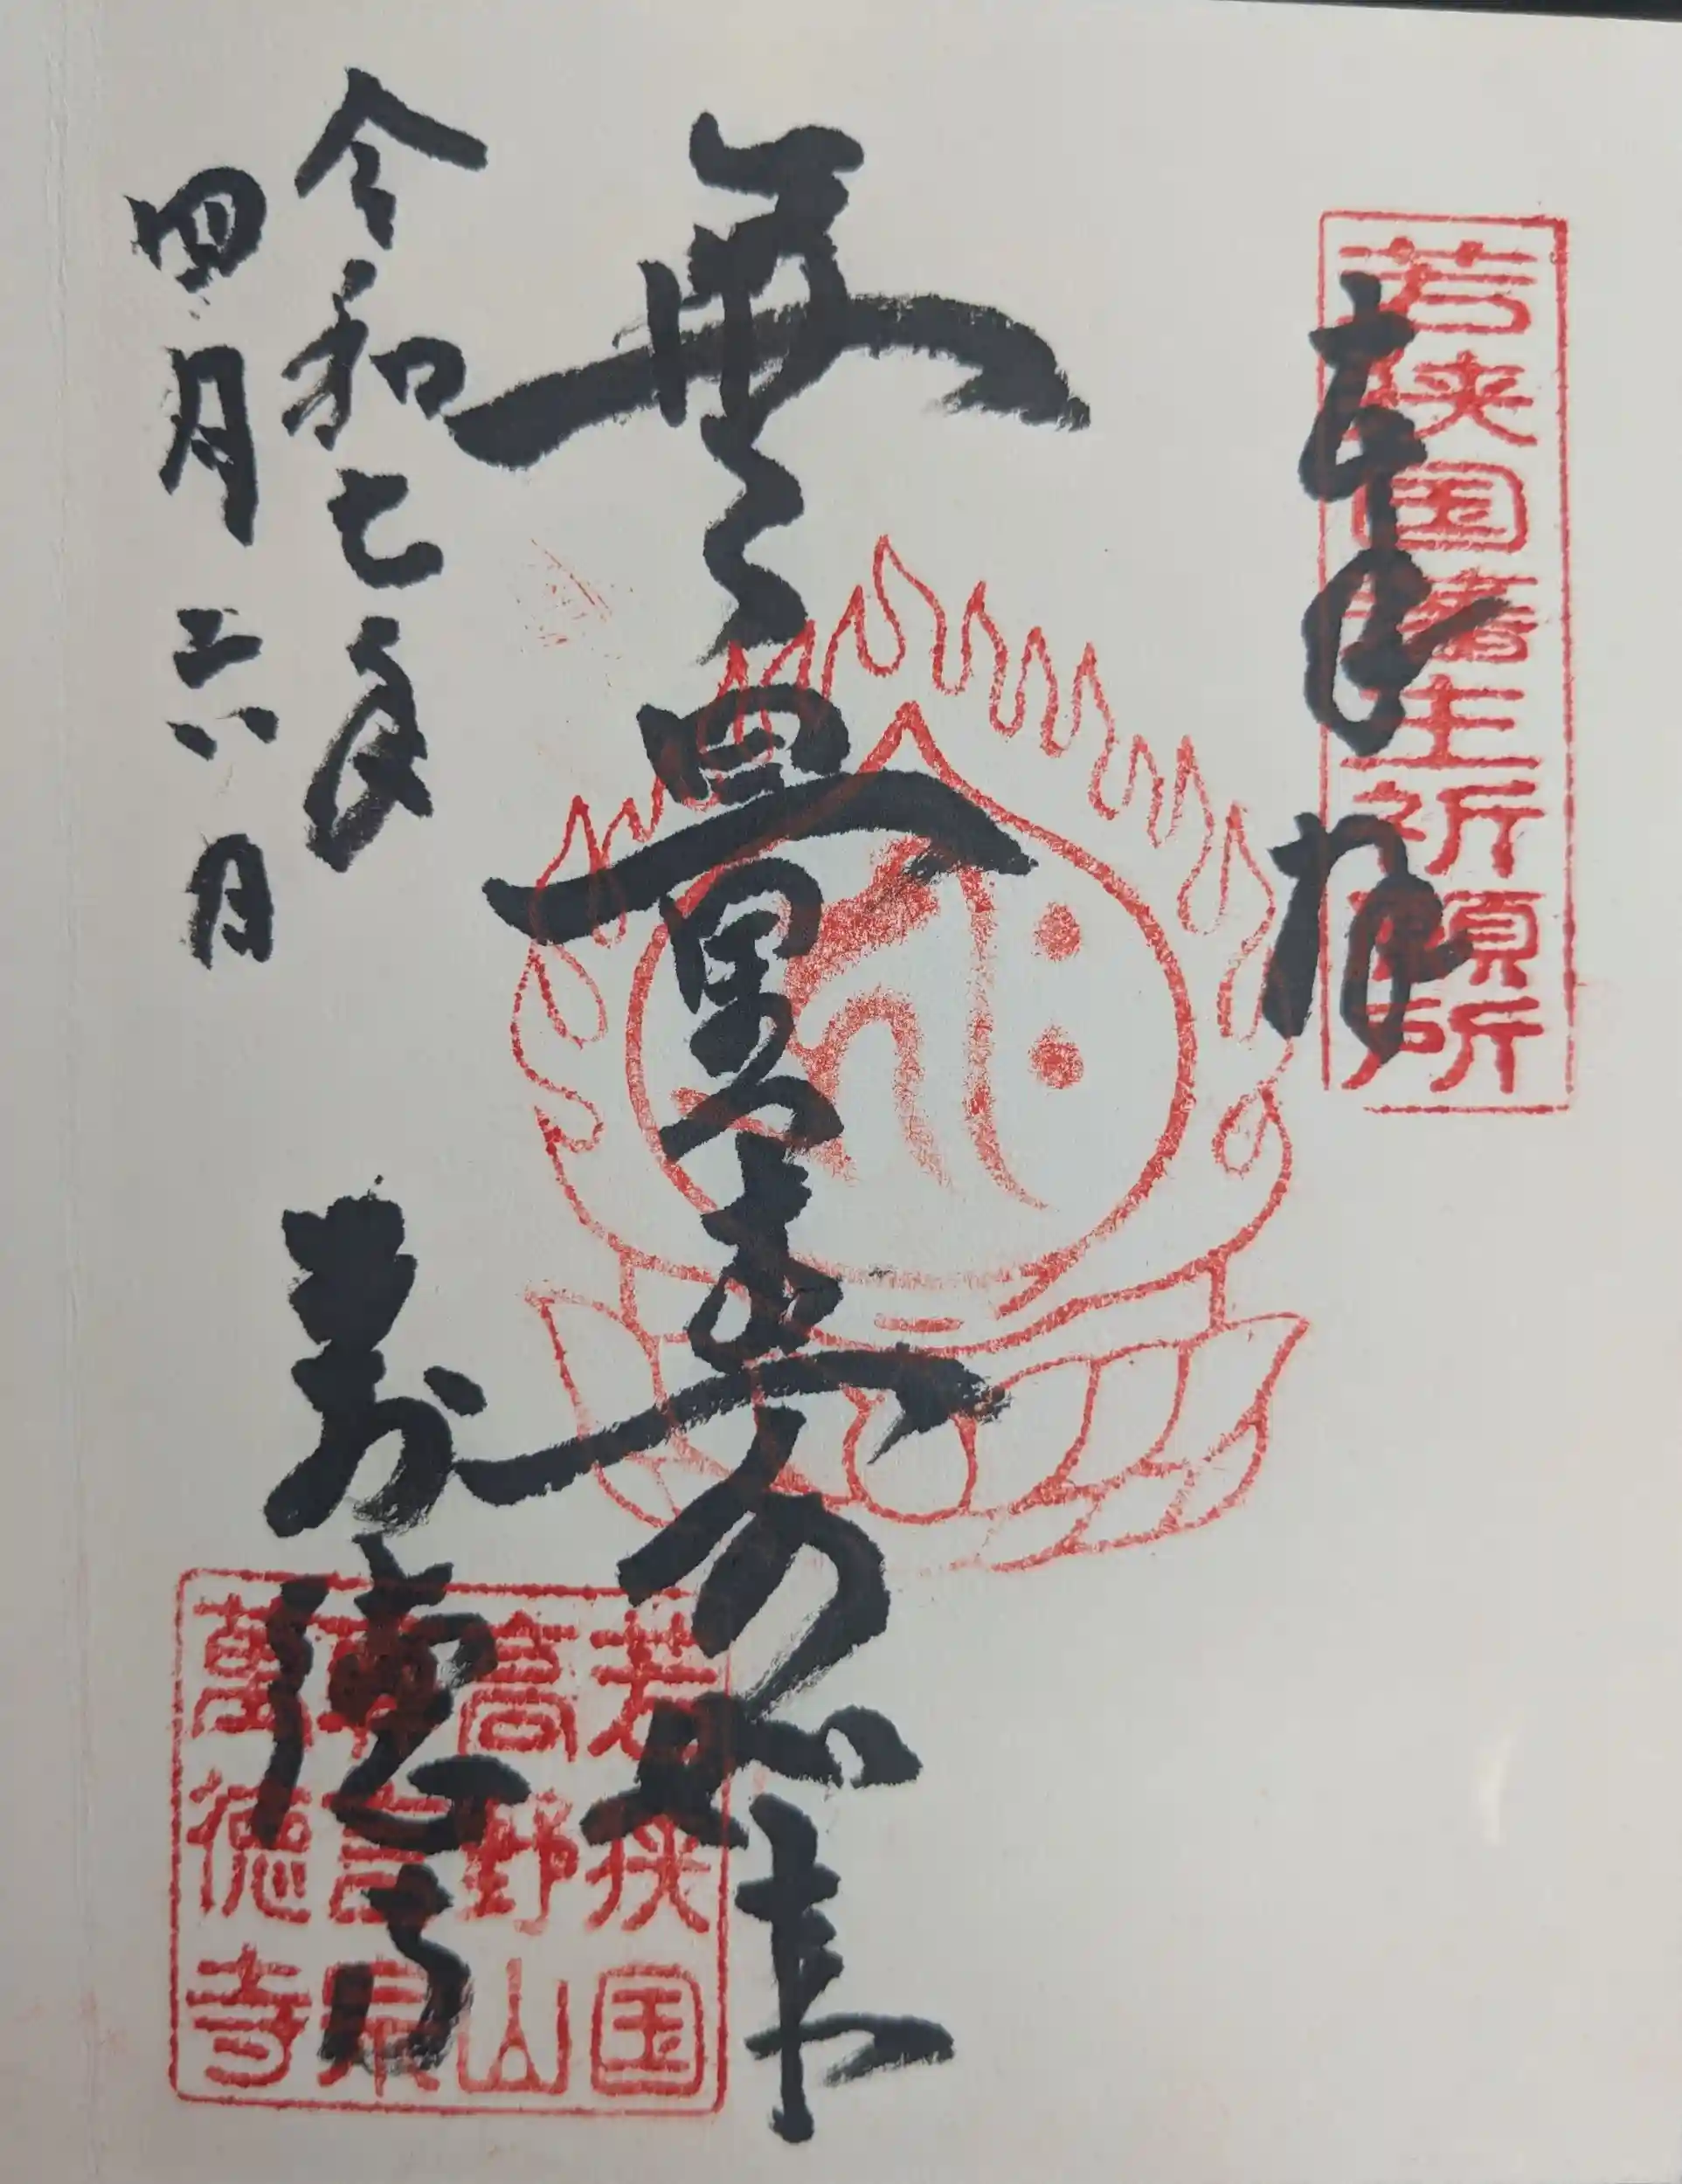 若狭国藩主祈願所
奉拝
無量壽如来
令和七年
四月二六日
萬徳寺
若狭国
高野山
真言宗
萬徳寺